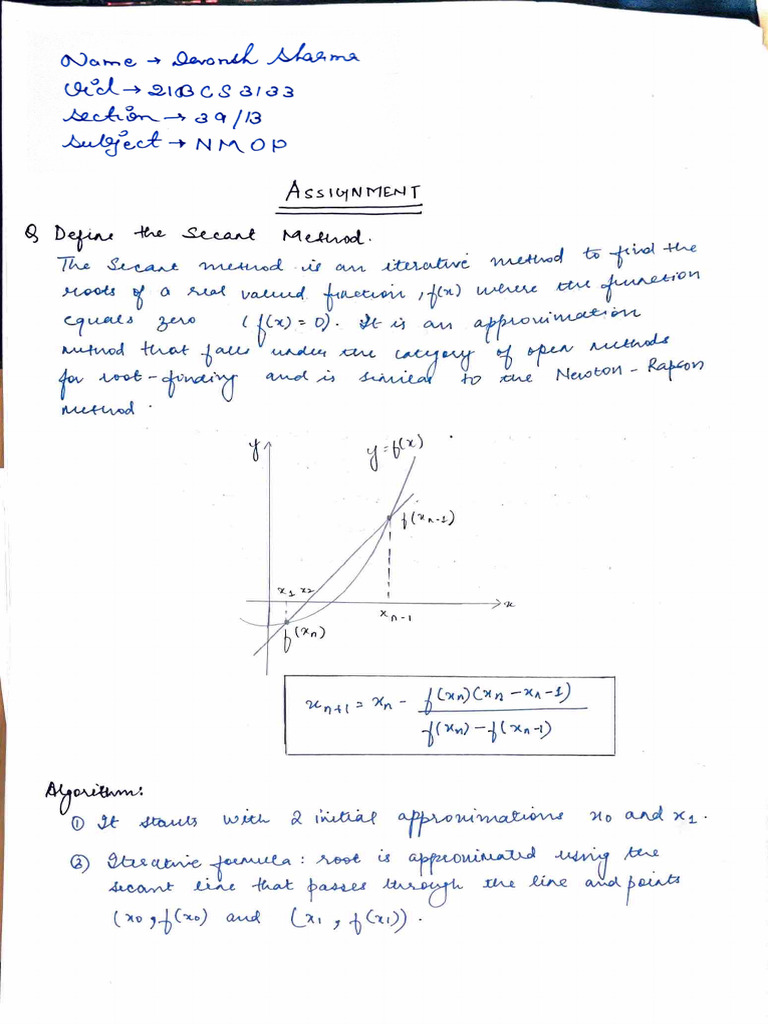 Name → Devansh Sharma
Uid → 21BCS3133
Section → 39/B
Subject → NMOP
ASSIGNMENT
Q Define the Secant Method.
The Secant method is an iterative method to find the
roots of a real valued fraction, f(x) where the function
equals zero (f(x) = 0). It is an approximation
method that falls under the category of open methods
for root-finding and is similar to the Newton - Rapson
method.
y
y = f(x)
f(xn-1)
x1 x2
x
xn-1
f(xn)
xn+1 = xn - f(xn)(xn - xn-1)
f(xn) - f(xn-1)
Algorithm:
① It starts with 2 initial approximations x0 and x1.
② Iterative formula: root is approximated using the
secant line that passes through the line and points
(x0, f(x0) and (x1, f(x1)).